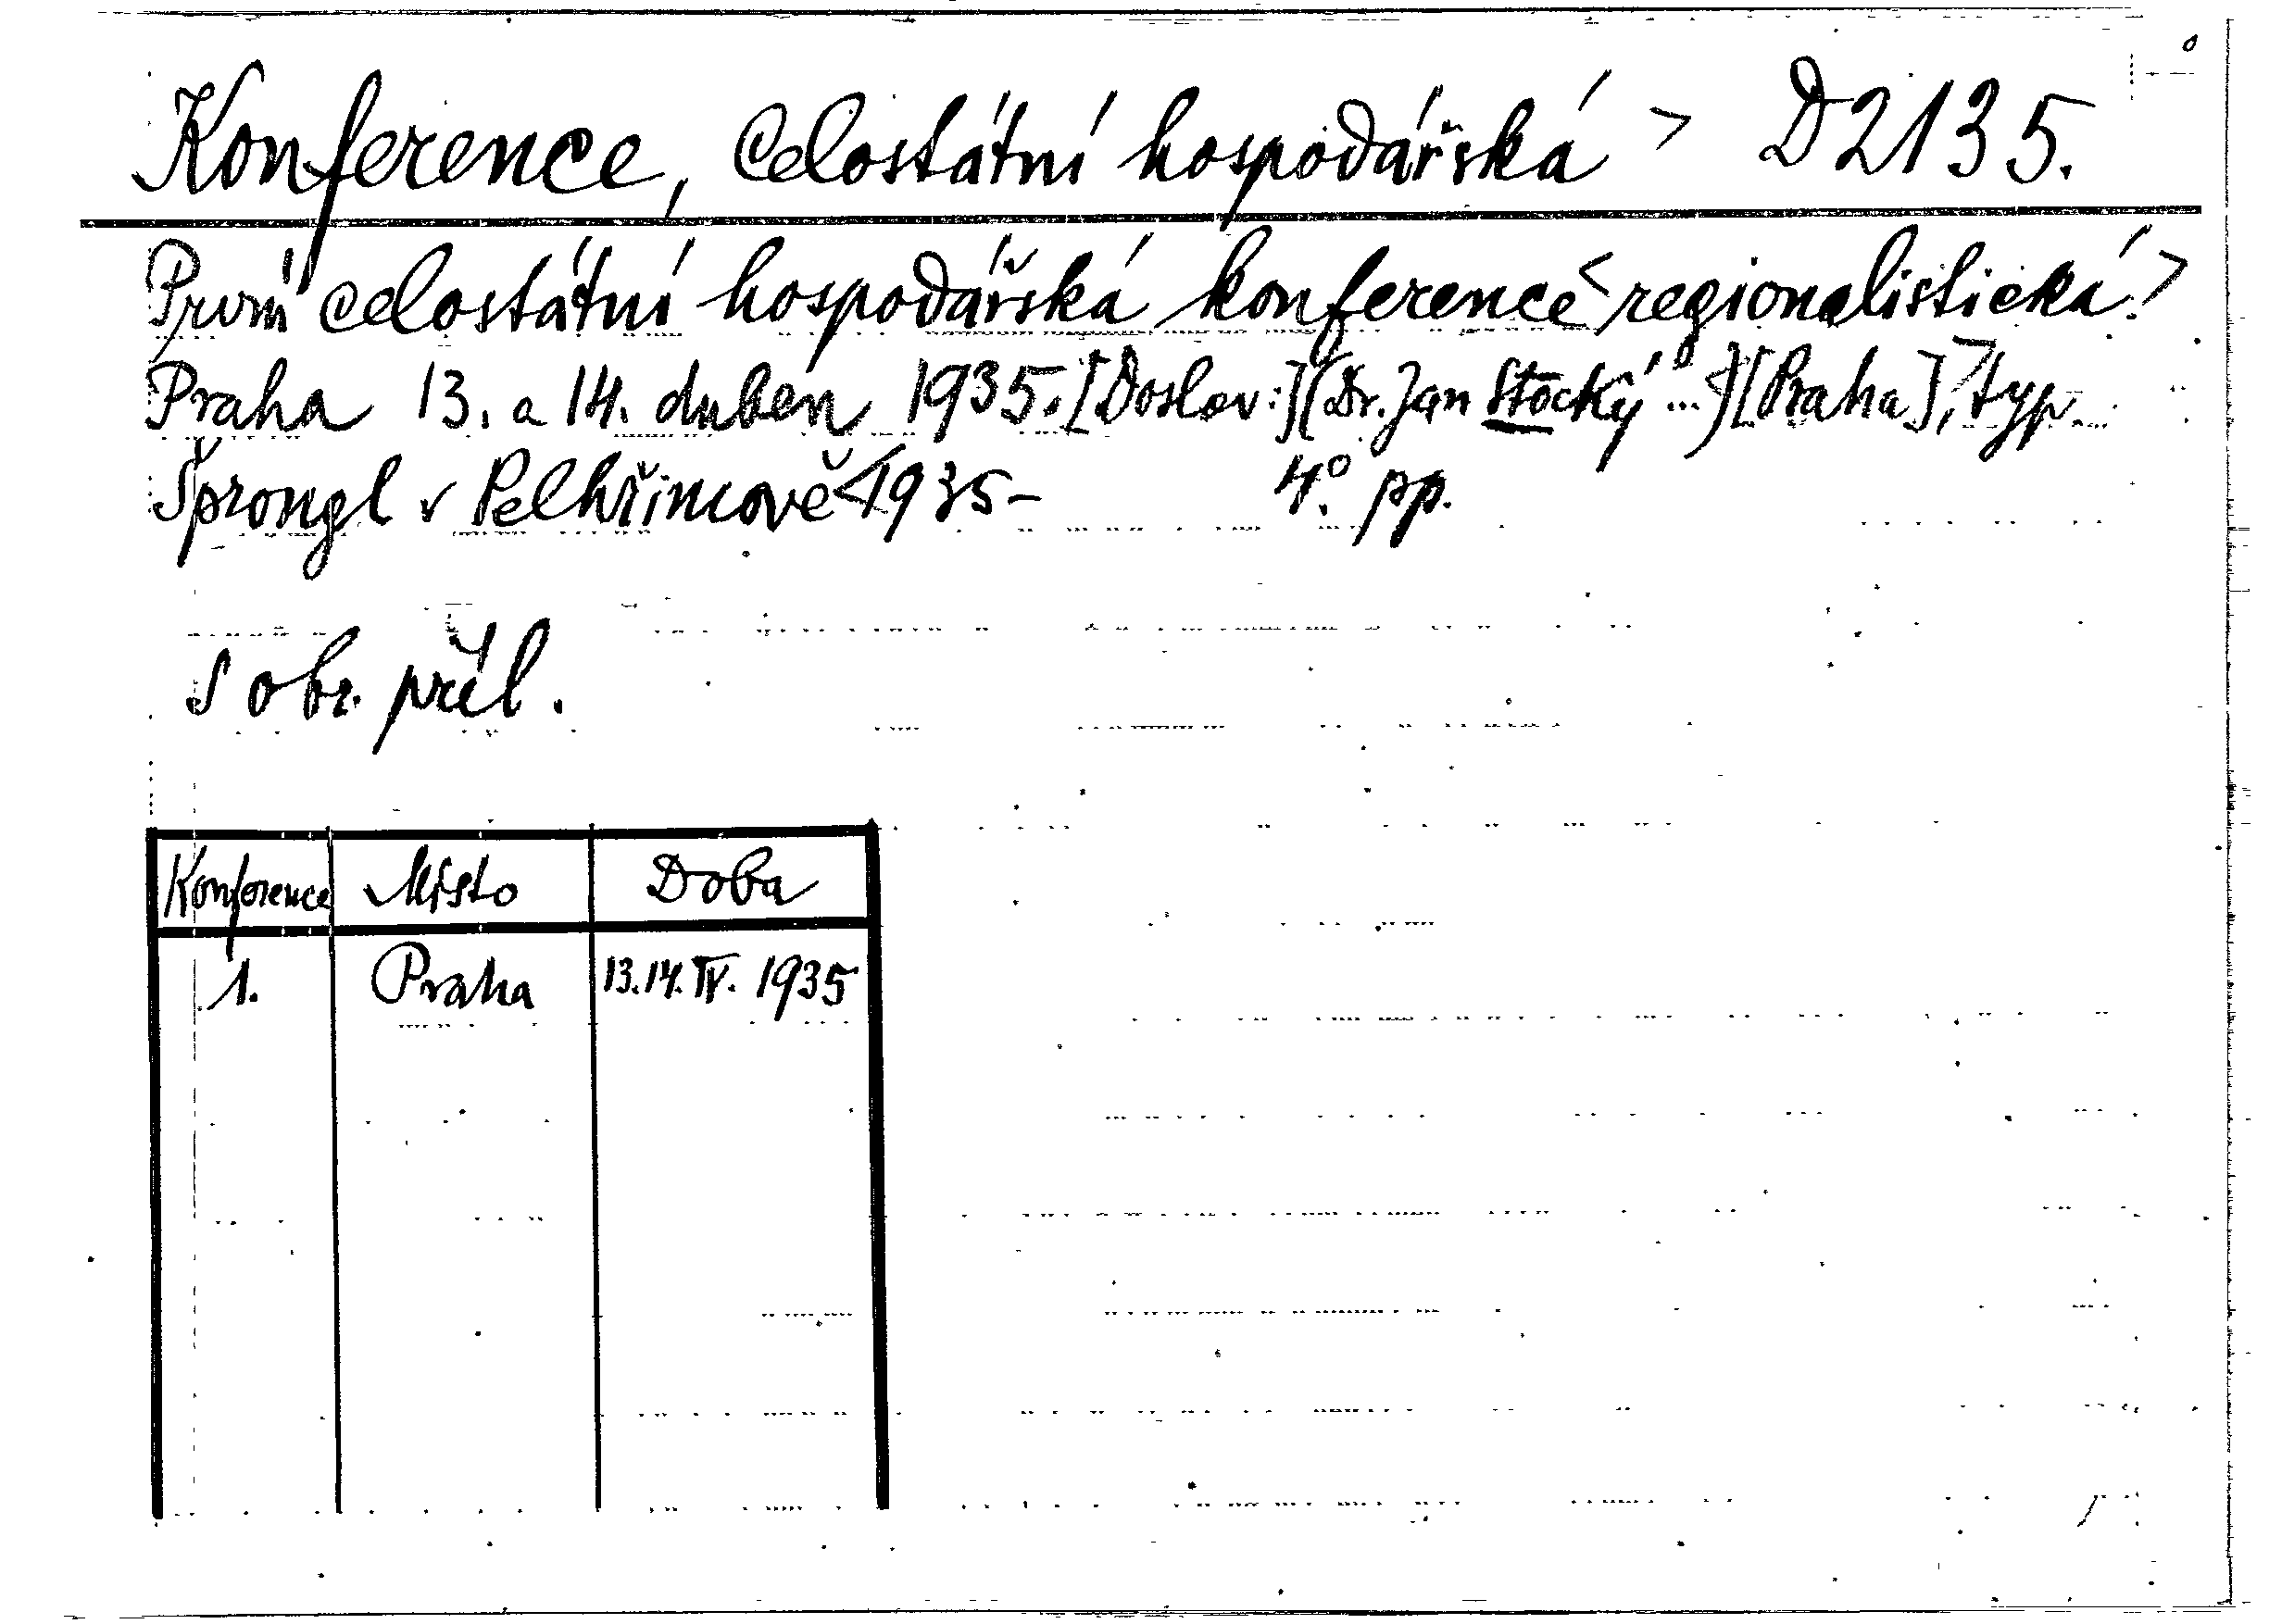 Konference, Celostátní hospodářská > D 2135.
První celostátní hospodářská konference < regionalistická. >
Praha 13. a 14. duben 1935. [Doslov:] (Dr. Jan Stocký ...) [Praha], typ.
Šprongl v Pelhřimově < 1935- 4°. pp.
S obr. příl.
Konference Místo Doba
1. Praha 13. 14. IV. 1935